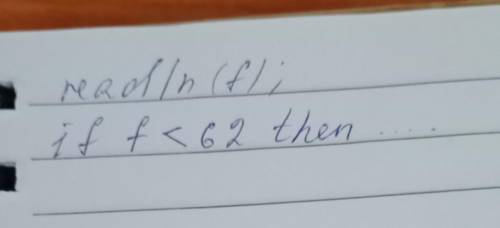 readln(f);
if f < 62 then .....